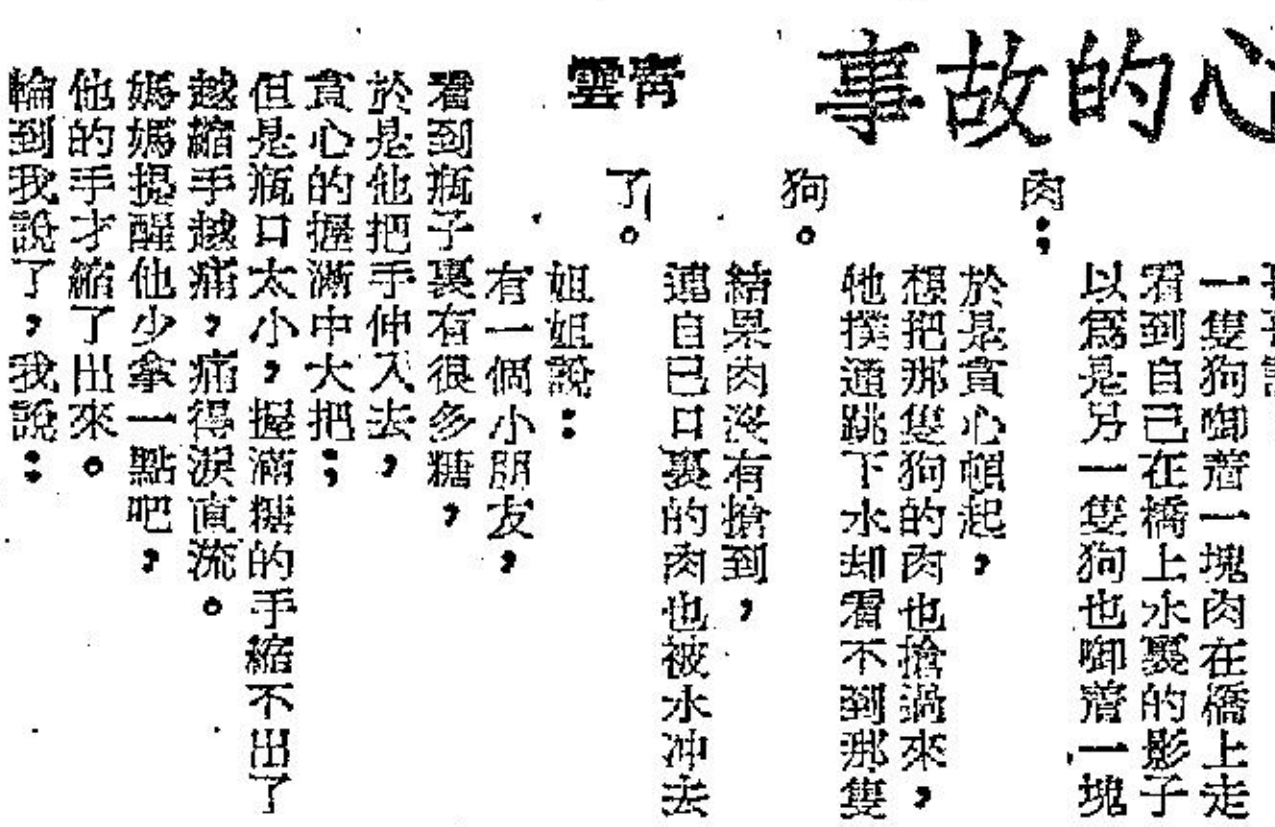 心的故事
青雲
一隻狗啣着一塊肉在橋上走
看到自己在橋上水裏的影子
以爲是另一隻狗也啣着一塊
肉；
於是貪心頓起，
想把那隻狗的肉也搶過來，
牠撲通跳下水却看不到那隻
狗。
結果肉沒有搶到，
連自己口裏的肉也被水冲去
了。
姐姐說：
有一個小朋友，
看到瓶子裏有很多糖，
於是他把手伸入去，
貪心的握滿中大把；
但是瓶口太小，握滿糖的手縮不出了
越縮手越痛，痛得淚直流。
媽媽提醒他少拿一點吧，
他的手才縮了出來。
輪到我說了，我說：